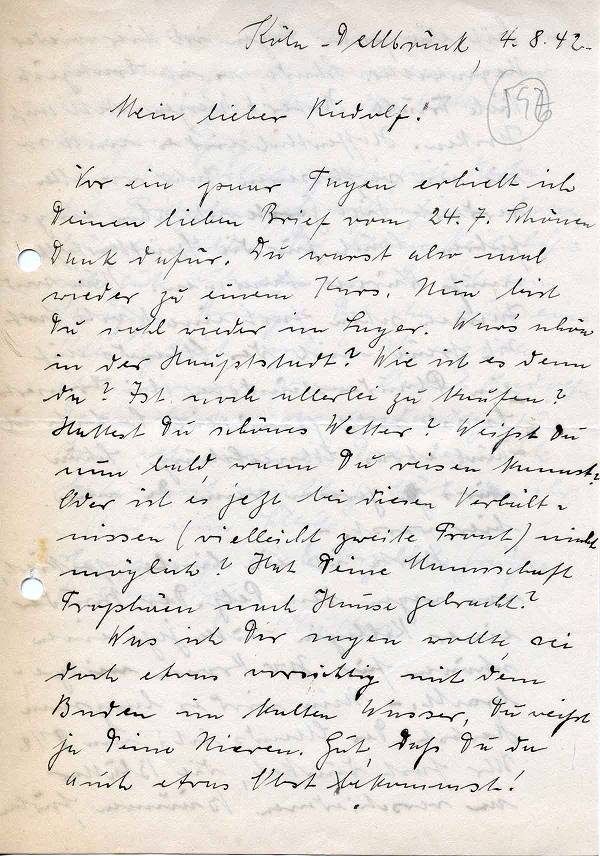 Köln-Dellbrück, 4.8.42.
Mein lieber Rudolf!
Vor ein paar Tagen erhielt ich
Deinen lieben Brief vom 24.7. Schönen
Dank dafür. Du warst also mal
wieder zu einem Kurs. Nun bist
Du wohl wieder im Lager. War's schön
in der Hauptstadt? Wie ist es denn
da? Ist noch allerlei zu kaufen?
Hattest Du schönes Wetter? Weißt Du
nun bald, wann Du reisen kannst?
Oder ist es jetzt bei diesen Verhält-
nissen (vielleicht zweite Front) nicht
möglich? Hat Deine Mannschaft
Trophäen nach Hause gebracht?
Was ich Dir sagen wollte, sei
doch etwas vorsichtig mit dem
Baden im kalten Wasser, Du weißt
ja Deine Nieren. Gut, daß Du da
auch etwas Obst bekommst!